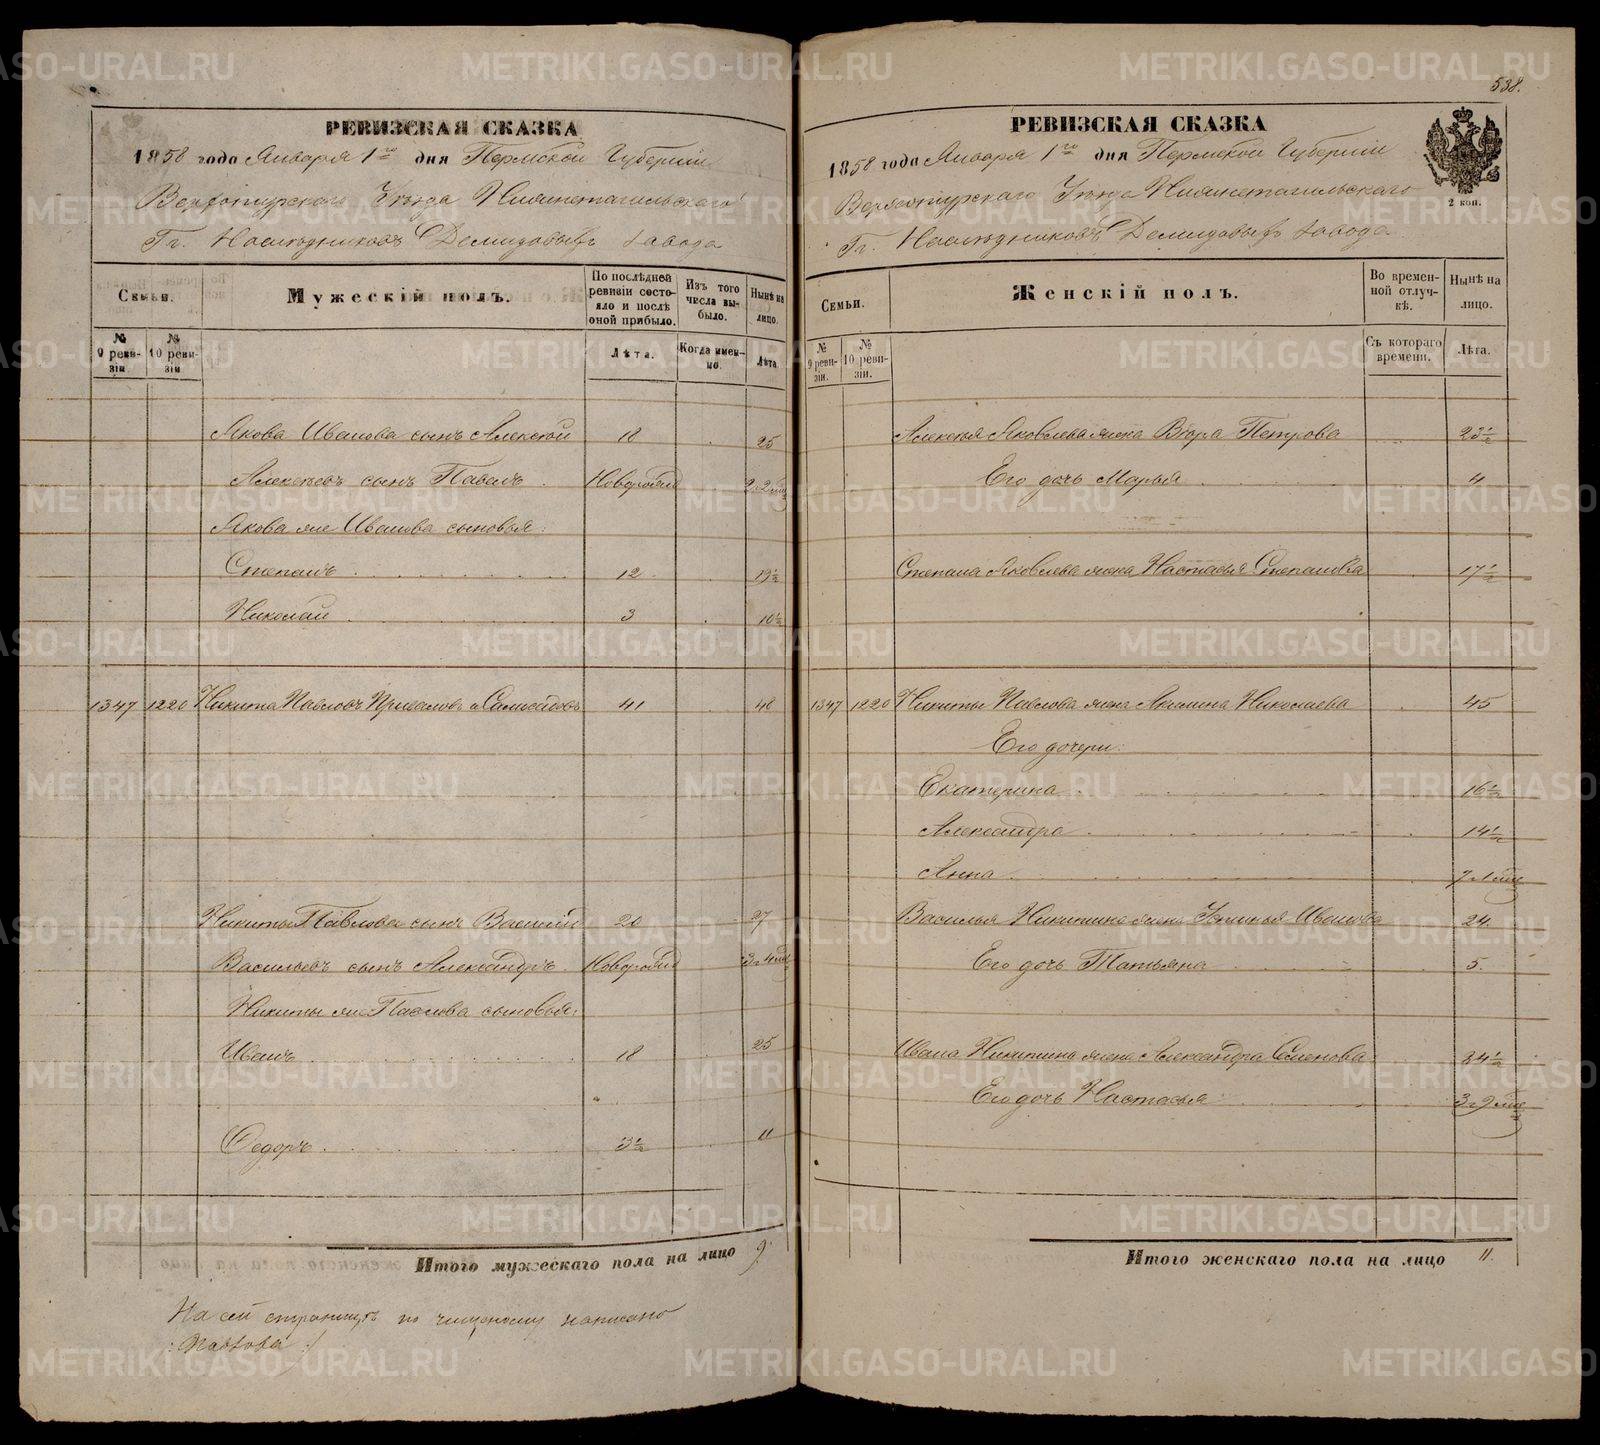 538.
РЕВИЗСКАЯ СКАЗКА
1858 года Января 1го дня Пермской Губернии
Верхотурского Уѣзда Нижнетагильскаго
Гг. Наслѣдниковъ Демидовыхъ завода
Семьи.
Мужескій полъ.
По послѣдней ревизіи состояло и послѣ оной прибыло.
Изъ того числа выбыло.
Нынѣ на лицо.
№ 9 ревизіи
№ 10 ревизіи
Лѣта.
Когда именно.
Лѣта.
Якова Иванова сынъ Алексѣй 18 25
Алексѣевъ сынъ Павелъ Новорожд 2 г. 2 мѣс
Якова же Иванова сыновья:
Степанъ 12 19½
Николай 3 10½
1347 1220 Никита Павловъ Привалова и Самойловъ 41 48
Никиты Павлова сынъ Василій 20 27
Васильевъ сынъ Александръ Новорожд 3 г. 4 мѣс
Никиты же Павлова сыновья:
Иванъ 18 25
Федоръ 3½ 11
Итого мужескаго пола на лицо 9.
На сей страницѣ по чищеному написано
: Павлова :/
РЕВИЗСКАЯ СКАЗКА
1858 года Января 1го дня Пермской Губерніи
Верхотурскаго Уѣзда Нижнетагильскаго
Гг. Наслѣдниковъ Демидовыхъ завода
2 коп.
Семьи.
Женскій полъ.
Во временной отлучкѣ.
Нынѣ на лицо.
№ 9 ревизіи.
№ 10 ревизіи.
Съ котораго времени.
Лѣта.
Алексѣя Яковлева жена Вѣра Петрова 23½
Его дочь Марья 4
Степана Яковлева жена Настасья Степанова 17½
1347 1220 Никиты Павлова жена Акилина Николаева 45
Его дочери:
Екатерина 16½
Александра 14½
Анна 7 г. 1 мѣс
Василья Никитина жена Устинья Иванова 24.
Его дочь Татьяна 5.
Ивана Никитина жена Александра Семенова 24½
Его дочь Настасья 3 г. 9 мѣс
Итого женскаго пола на лицо 11.
METRIKI.GASO-URAL.RU